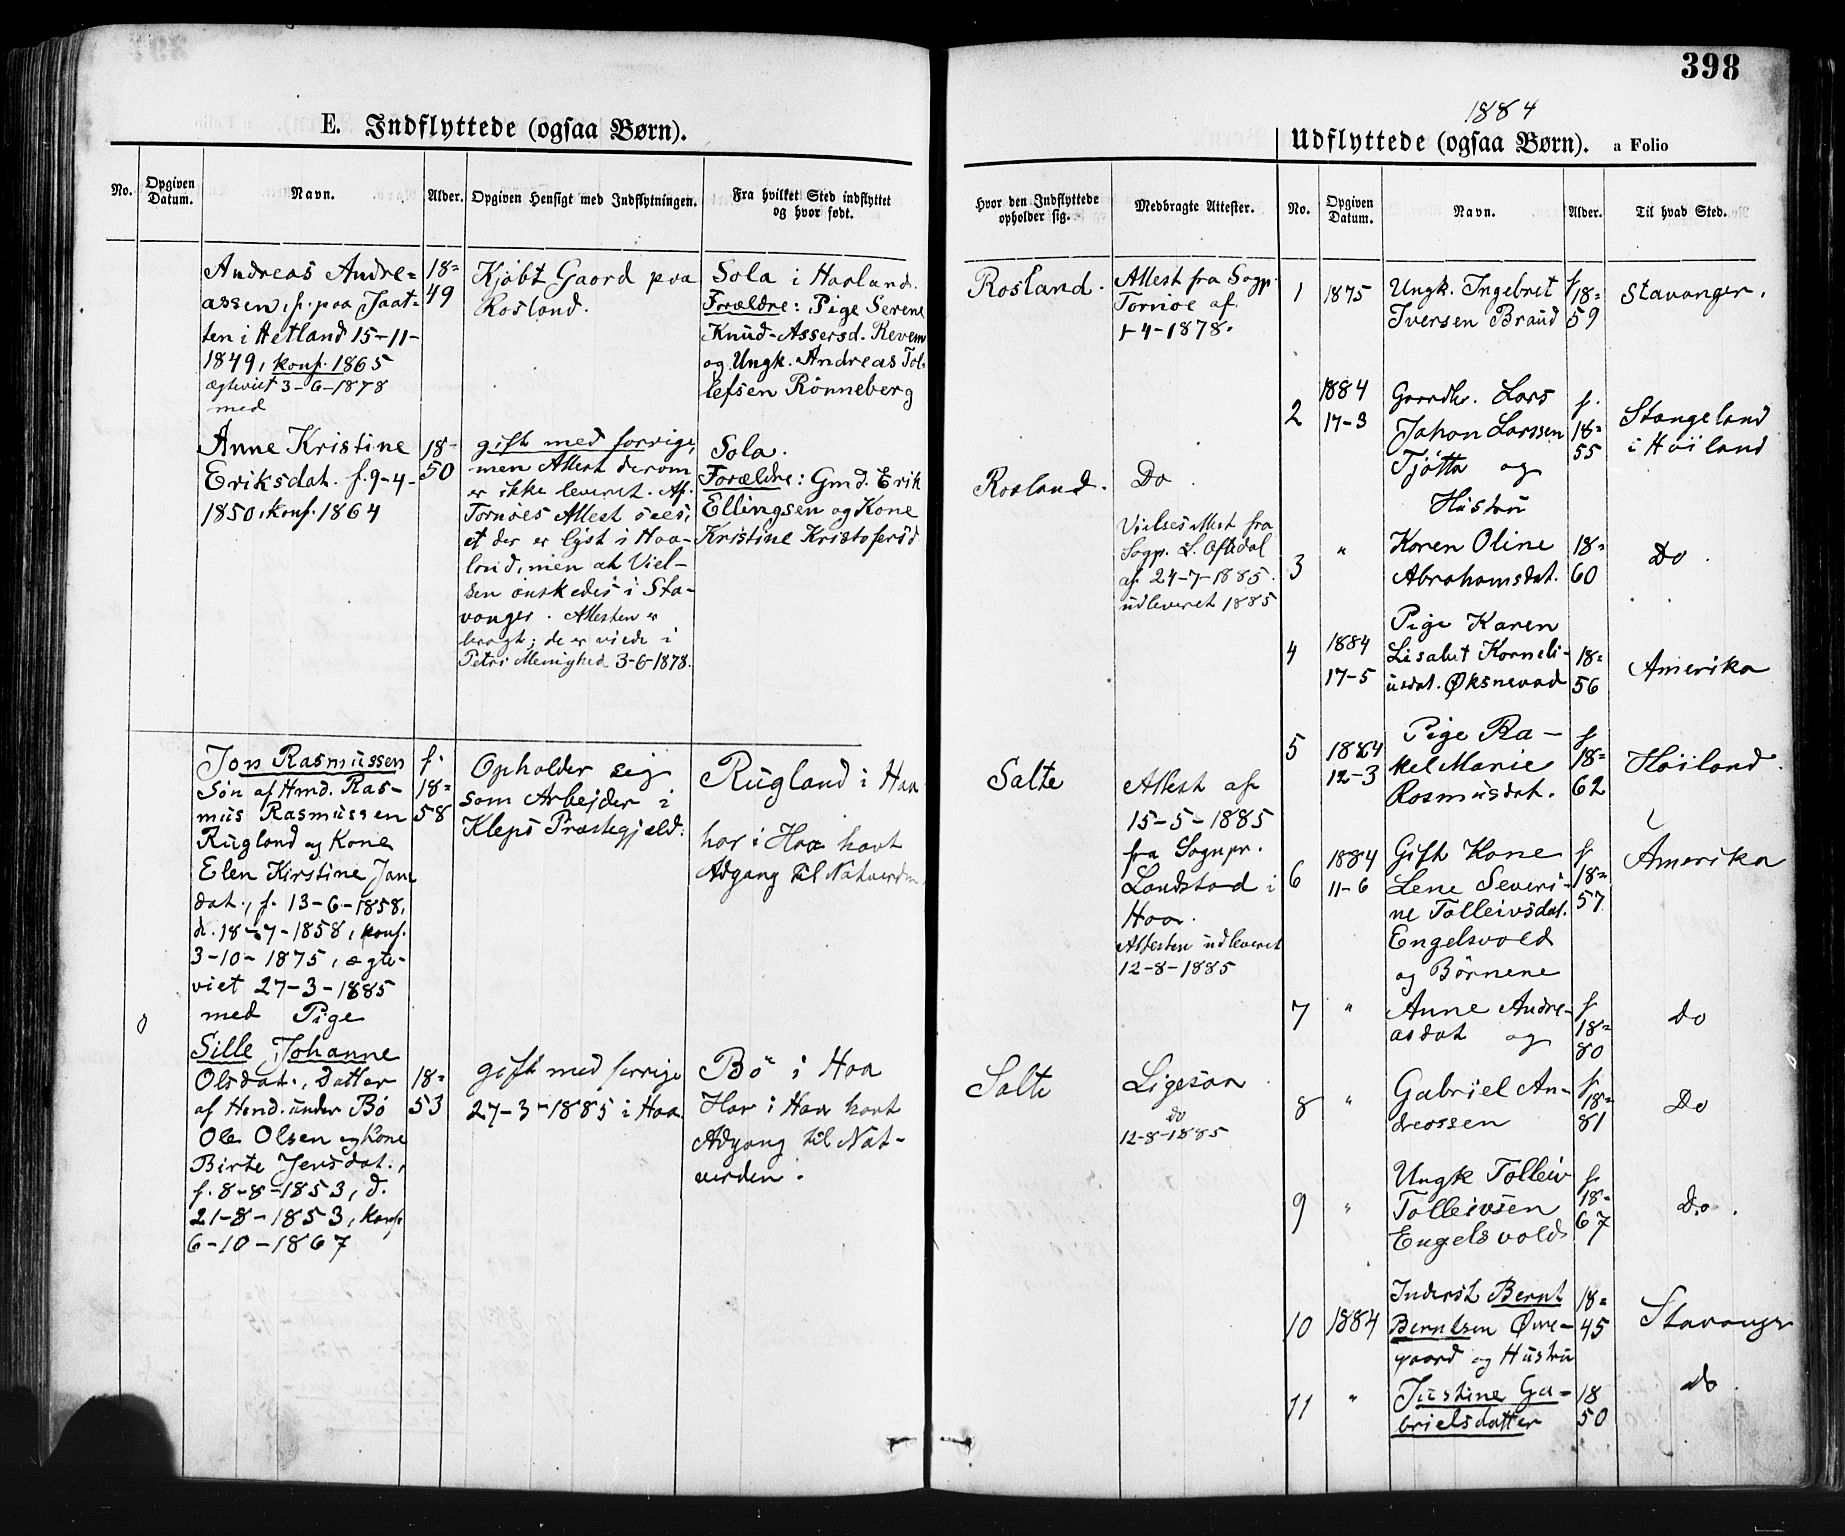 398
E. Indflyttede (ogsaa Børn).
No.
Opgiven Datum.
Navn.
Alder.
Opgiven Hensigt med Indflytningen.
Fra hvilket Sted indflyttet
og hvor født.
Andreas Andre=
assen, f. paa Jaat-
ten i Hetland 15-11-
1849, konf. 1865
ægteviet 3-6-1878
med
18=
49
Kjøbt Gaard paa
Rosland.
Sola i Haaland.
Forældre: Pige Serene
Knud-Assersd. Revem
og Ungk. Andreas Tol-
lefsen Rönneberg
Anne Kristine
Eriksdat. f. 9-4-
1850, konf. 1864
18-
50
gift med forrige,
men Attest derom
er ikke leveret. Af
Tornöes Attest sees,
at der er lyst i Haa-
land, men at Viel-
sen önskedes i Sta-
vanger. Attesten er
bragt; de er viede i
Petri Menighed 3-6-1878.
Sola.
Forældre: Gmd. Erik
Ellingsen og Kone
Kristine Kristofersd
Jon Rasmussen
Sön af Hmd. Ras-
mus Rasmussen
Rugland og Kone
Elen Kirstine Jans
dat., f. 13-6-1858,
d. 18-7-1858, konf.
3-10-1875, ægte-
viet 27-3-1885
med Pige
f.
18=
58
Opholder sig
som Arbejder i
Kleps Præstegjæld.
Rugland i Haa
har i Haa havt
Adgang til Natverden.
Sille Johanne
Olsdat., Datter
af Hmd. under Bö
Ole Olsen og Kone
Birte Jensdat.,
f. 8-8-1853, d.
21-8-1853, konf.
6-10-1867
18=
53
gift med forrige
27-3-1885 i Haa
Bö i Haa
Har i Haa havt
Adgang til Nat-
verden.
1884
Udflyttede (ogsaa Børn). a Folio
Hvor den Indflyttede
opholder sig.
Medbragte Attester.
No.
Opgiven Datum.
Navn.
Alder.
Til hvad Sted.
Rosland.
Attest fra Sogp.
Tornöe af
1-4-1878.
Rosland.
Do.
Vielsesattest fra
Sogp. L. Oftedal
af 24-7-1885.
udleveret 1885
Salte
Attest af
15-5-1885
fra Sognpr.
Landstad i
Haa.
Attesten udleveret
12-8-1885
Salte
Ligesaa
do
12-8-1885
1
1875
Ungk. Ingebret
Iversen Braud
f
18=
59
Stavanger.
2
1884
17-3
Gaardbr. Lars
Johan Larssen
Tjötta og
Hustru
f.
18=
55
Stangeland
i Höiland
3
"
Karen Oline
Abrahamsdat.
18=
60
Do.
4
1884
17-5
Pige Karen
Lisabet Korneli-
usdat. Øksnevad
18=
56
Amerika
5
1884
12-3
Pige Ra-
kel Marie
Rasmusdat.
f
18=
62
Höiland.
6
1884
11-6
Gift Kone
Lene Severi-
ne Tolleivsdat.
Engelsvold
og Börnene
f
18=
57
Amerika
7
"
Anne Andre-
asdat og
f
18=
80
Do
8
"
Gabriel An-
dreassen
f
18=
81
Do
9
"
Ungk Tolleiv
Tolleivsen
Engelsvold
f
18=
67
Do.
10
1884
Inderst Bernt
Berntsen Övre-
gaard og Hustru
18=
45
Stavanger
11
"
Justine Ga-
brielsdatter
18
50
do.